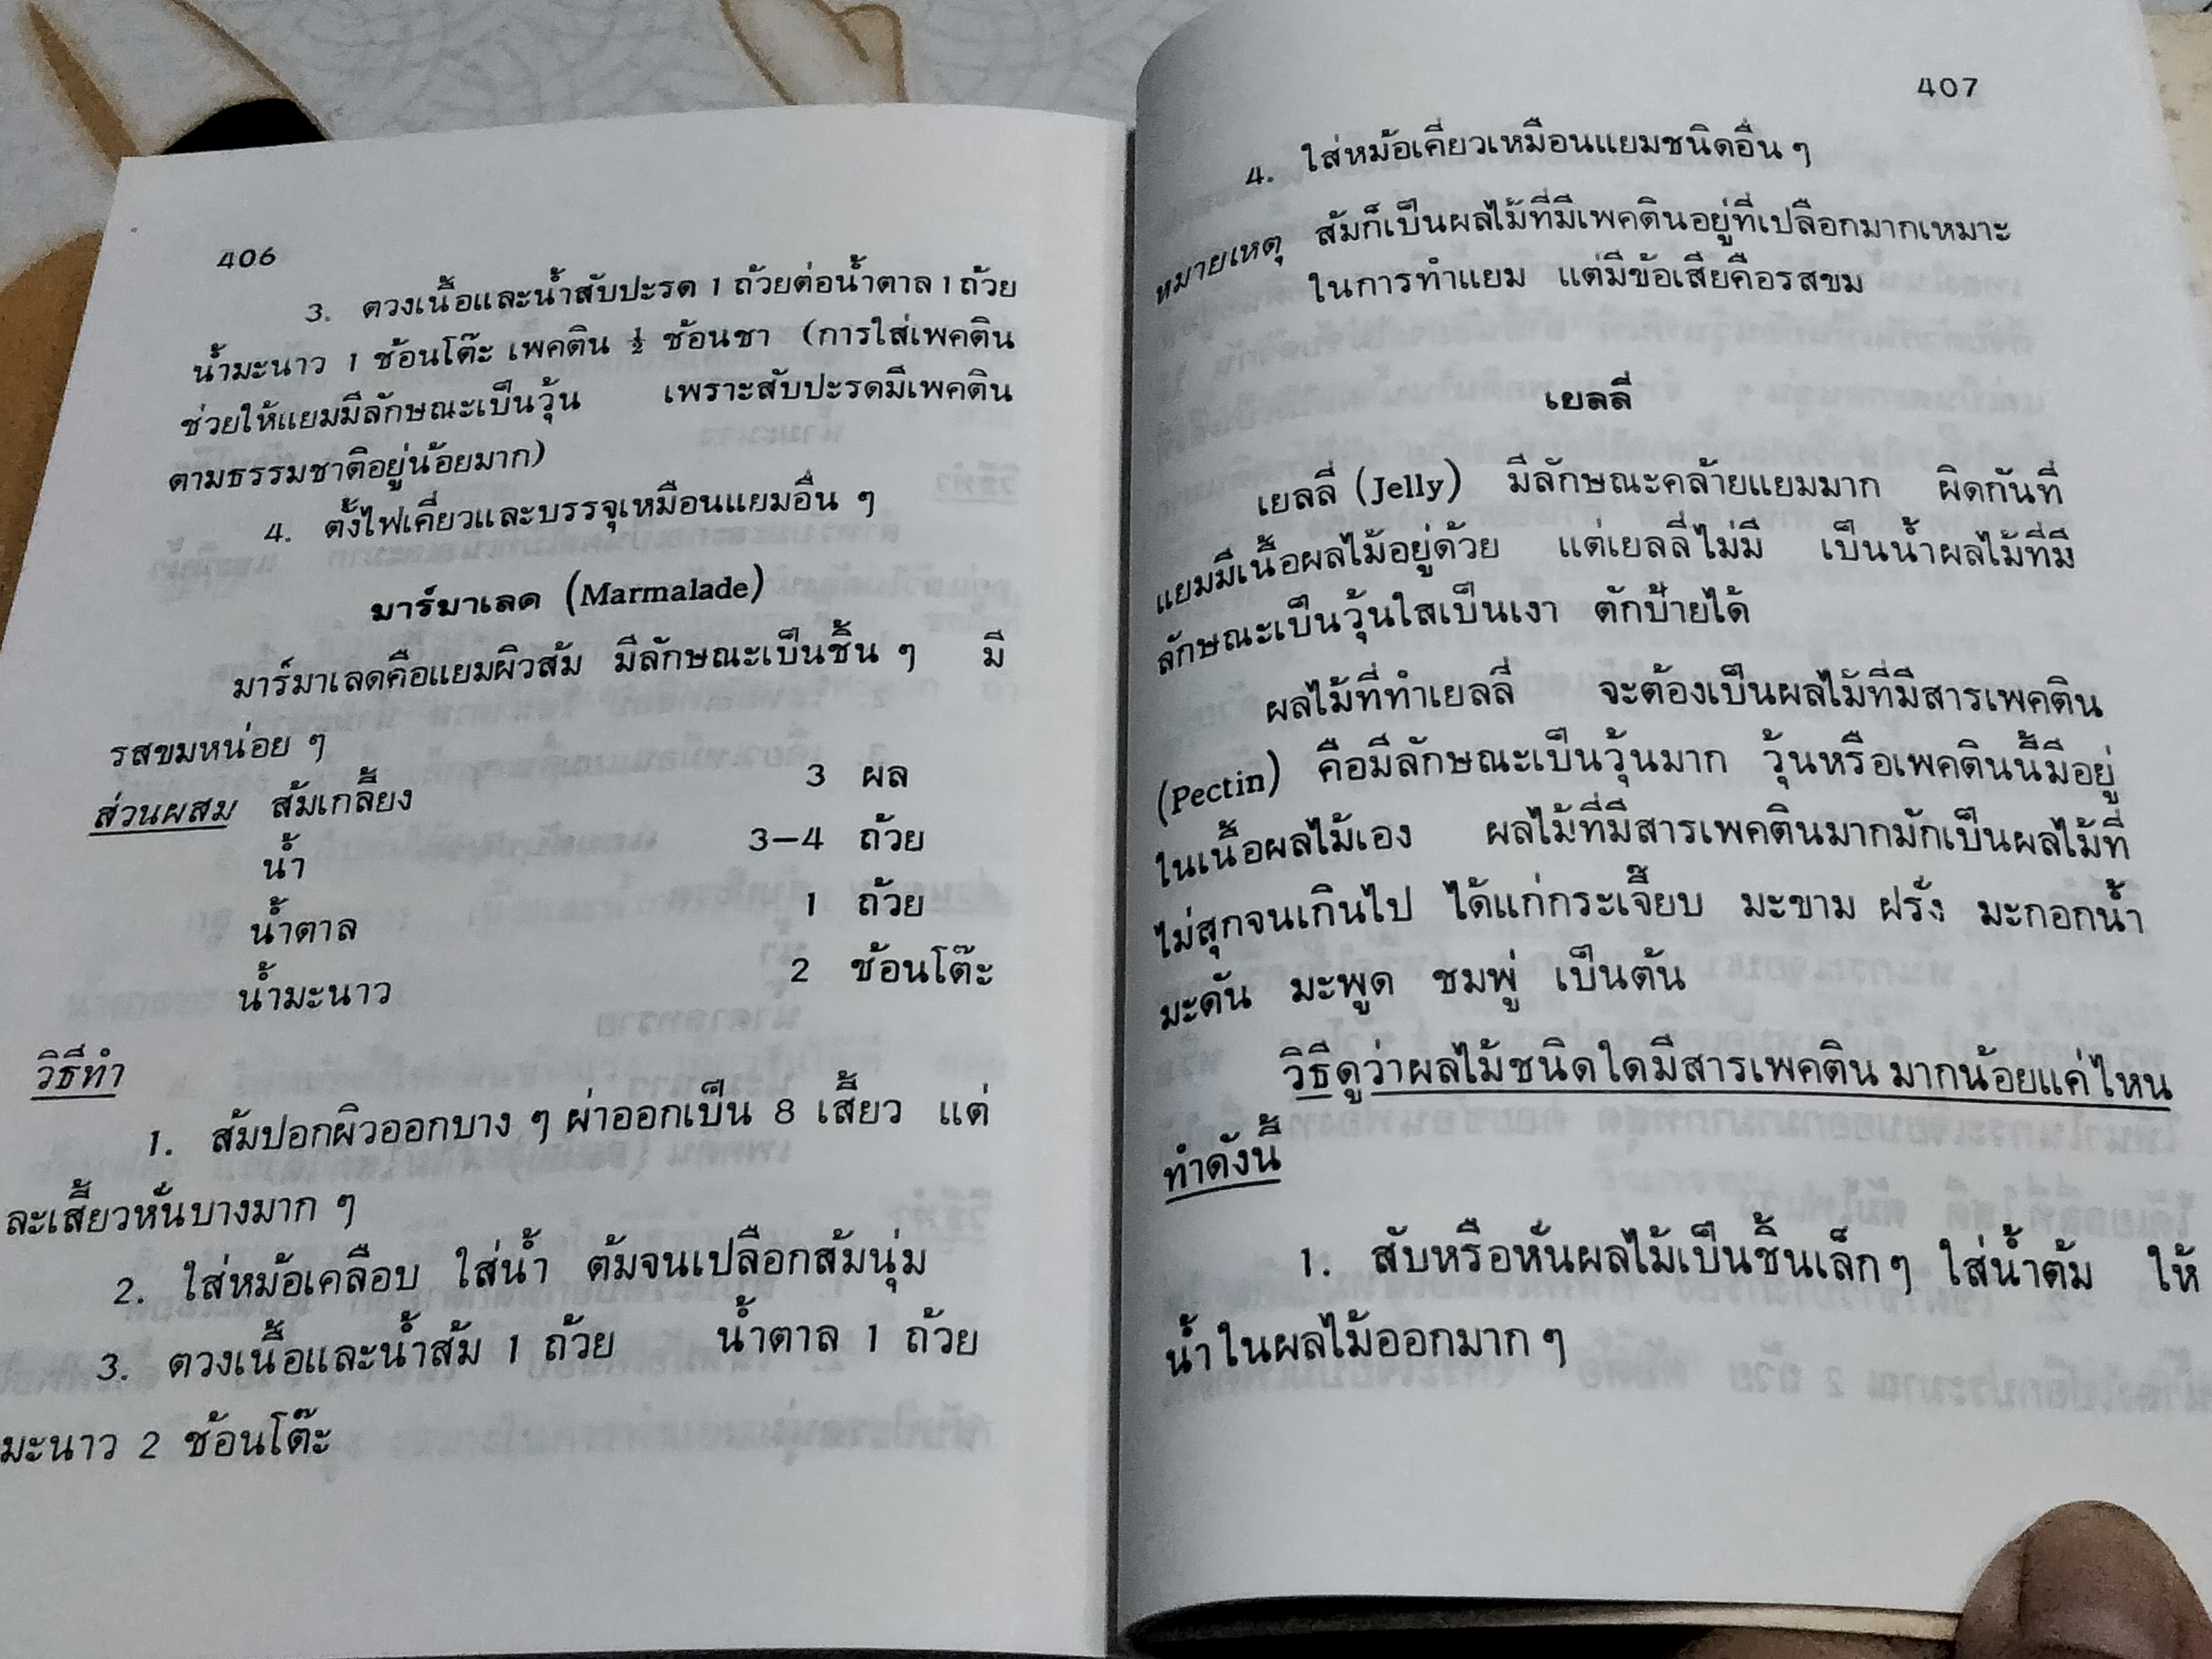 406
3. ตวงเนื้อและน้ำสับปะรด 1 ถ้วยต่อน้ำตาล 1 ถ้วย
น้ำมะนาว 1 ช้อนโต๊ะ เพคติน ½ ช้อนชา (การใส่เพคติน
ช่วยให้แยมมีลักษณะเป็นวุ้น เพราะสับปะรดมีเพคติน
ตามธรรมชาติอยู่น้อยมาก)
4. ตั้งไฟเคี่ยวและบรรจุเหมือนแยมอื่น ๆ
มาร์มาเลด (Marmalade)
มาร์มาเลดคือแยมผิวส้ม มีลักษณะเป็นชิ้น ๆ มี
รสขมหน่อย ๆ
ส่วนผสม ส้มเกลี้ยง 3 ผล
น้ำ 3-4 ถ้วย
น้ำตาล 1 ถ้วย
น้ำมะนาว 2 ช้อนโต๊ะ
วิธีทำ
1. ส้มปอกผิวออกบาง ๆ ผ่าออกเป็น 8 เสี้ยว แต่
ละเสี้ยวหั่นบางมาก ๆ
2. ใส่หม้อเคลือบ ใส่น้ำ ต้มจนเปลือกส้มนุ่ม
3. ตวงเนื้อและน้ำส้ม 1 ถ้วย น้ำตาล 1 ถ้วย
มะนาว 2 ช้อนโต๊ะ
407
4. ใส่หม้อเคี่ยวเหมือนแยมชนิดอื่น ๆ
หมายเหตุ ส้มก็เป็นผลไม้ที่มีเพคตินอยู่ที่เปลือกมากเหมาะ
ในการทำแยม แต่มีข้อเสียคือรสขม
เยลลี่
เยลลี่ (Jelly) มีลักษณะคล้ายแยมมาก ผิดกันที่
แยมมีเนื้อผลไม้อยู่ด้วย แต่เยลลี่ไม่มี เป็นน้ำผลไม้ที่มี
ลักษณะเป็นวุ้นใสเป็นเงา ตักป้ายได้
ผลไม้ที่ทำเยลลี่ จะต้องเป็นผลไม้ที่มีสารเพคติน
(Pectin) คือมีลักษณะเป็นวุ้นมาก วุ้นหรือเพคตินนี้มีอยู่
ในเนื้อผลไม้เอง ผลไม้ที่มีสารเพคตินมากมักเป็นผลไม้ที่
ไม่สุกจนเกินไป ได้แก่กระเจี๊ยบ มะขาม ฝรั่ง มะกอกน้ำ
มะดัน มะพูด ชมพู่ เป็นต้น
วิธีดูว่าผลไม้ชนิดใดมีสารเพคติน มากน้อยแค่ไหน
ทำดังนี้
1. สับหรือหั่นผลไม้เป็นชิ้นเล็ก ๆ ใส่น้ำต้ม ให้
น้ำในผลไม้ออกมาก ๆ